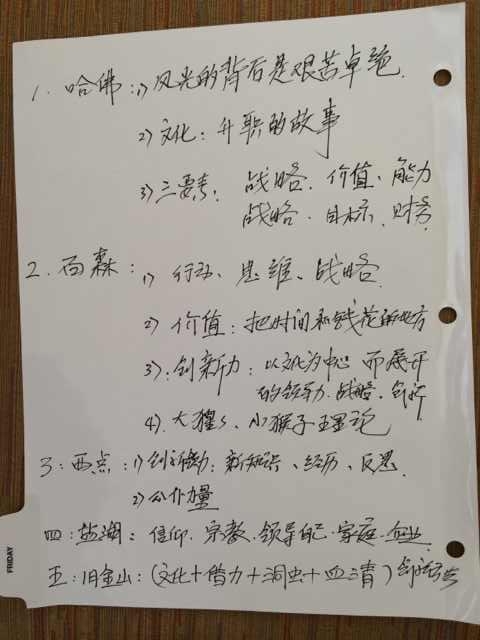 1. 哈佛：1) 风光的背后是艰苦卓绝.
2) 文化：升职的故事
3) 三要素：战略. 价值、能力
战略. 目标. 财务
2. 西森：1) 行动、思维、战略.
2) 价值：把时间和钱花在的地方
3)：创新力：以文化为中心 而展开
的领导力. 战略. 创新
4). 大猩猩、小猴子理论
3：西点：1) 创新力：新知识、经历、反思.
2)
四：盐湖：信仰. 宗教. 领导自己. 家庭. 企业
五：旧金山：(文化+借力+洞虫+血清)
FRIDAY